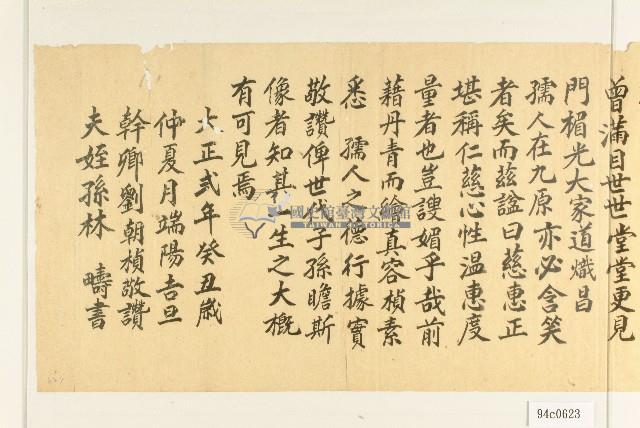 曾滿目世世堂堂更見
門楣光大家道熾昌
孺人在九原亦必含笑
者矣而茲諡曰慈惠正
堪稱仁慈心性温惠度
量者也豈謏媚乎哉前
藉丹青而繪真容楨素
悉 孺人之德行據實
敬讚俾世代子孫瞻斯
像者知其一生之大概
有可見焉
大正弍年癸丑歲
仲夏月端陽吉旦
幹卿劉朝楨敬讚
夫姪孫林 疇書
國史館臺灣文獻館
TAIWAN HISTORICA
94c0623